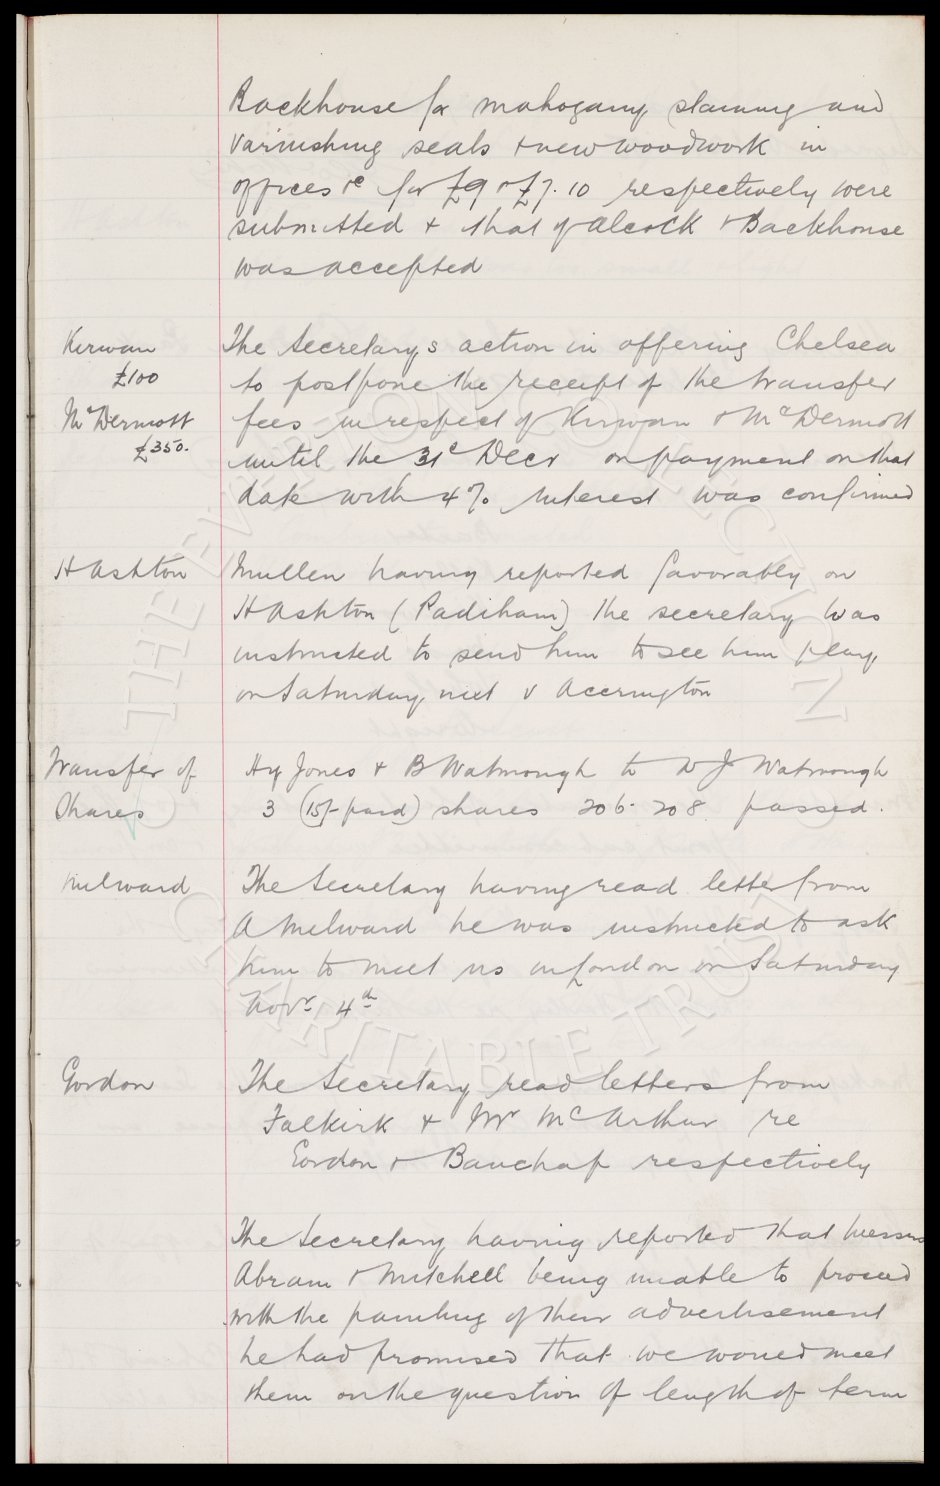 Backhouse for mahogany staining and
varnishing seats + new woodwork in
offices &c for £9 & £7.10 respectively were
submitted & that of Alcock & Backhouse
was accepted
Kirwan
£100
McDermott
£350.
The Secretary,s action in offering Chelsea
to postpone the receipt of the transfer
fees in respect of Kirwan & McDermott
until the 31st Decr on payment on that
date with 4% interest was confirmed
H Ashton
Mullen having reported favorably on
H Ashton (Padiham) the secretary was
instructed to send him to see him play
on Saturday next v Accrington
Transfer of
Shares
Hy Jones & B Watmough to W J Watmough
3 (15/- paid) shares 206-208 passed.
Milward
The Secretary having read letter from
A Milward he was instructed to ask
him to meet us in London on Saturday
Novr 4th
Gordon
The Secretary read letters from
Falkirk & Mr McArthur re
Gordon & Bauchop respectively
The Secretary having reported that Messrs
Abram & Mitchell being unable to proceed
with the painting of their advertisement
he had promised that we would meet
them on the question of length of term
THE EVERTON COLLECTION
CHARITABLE TRUST